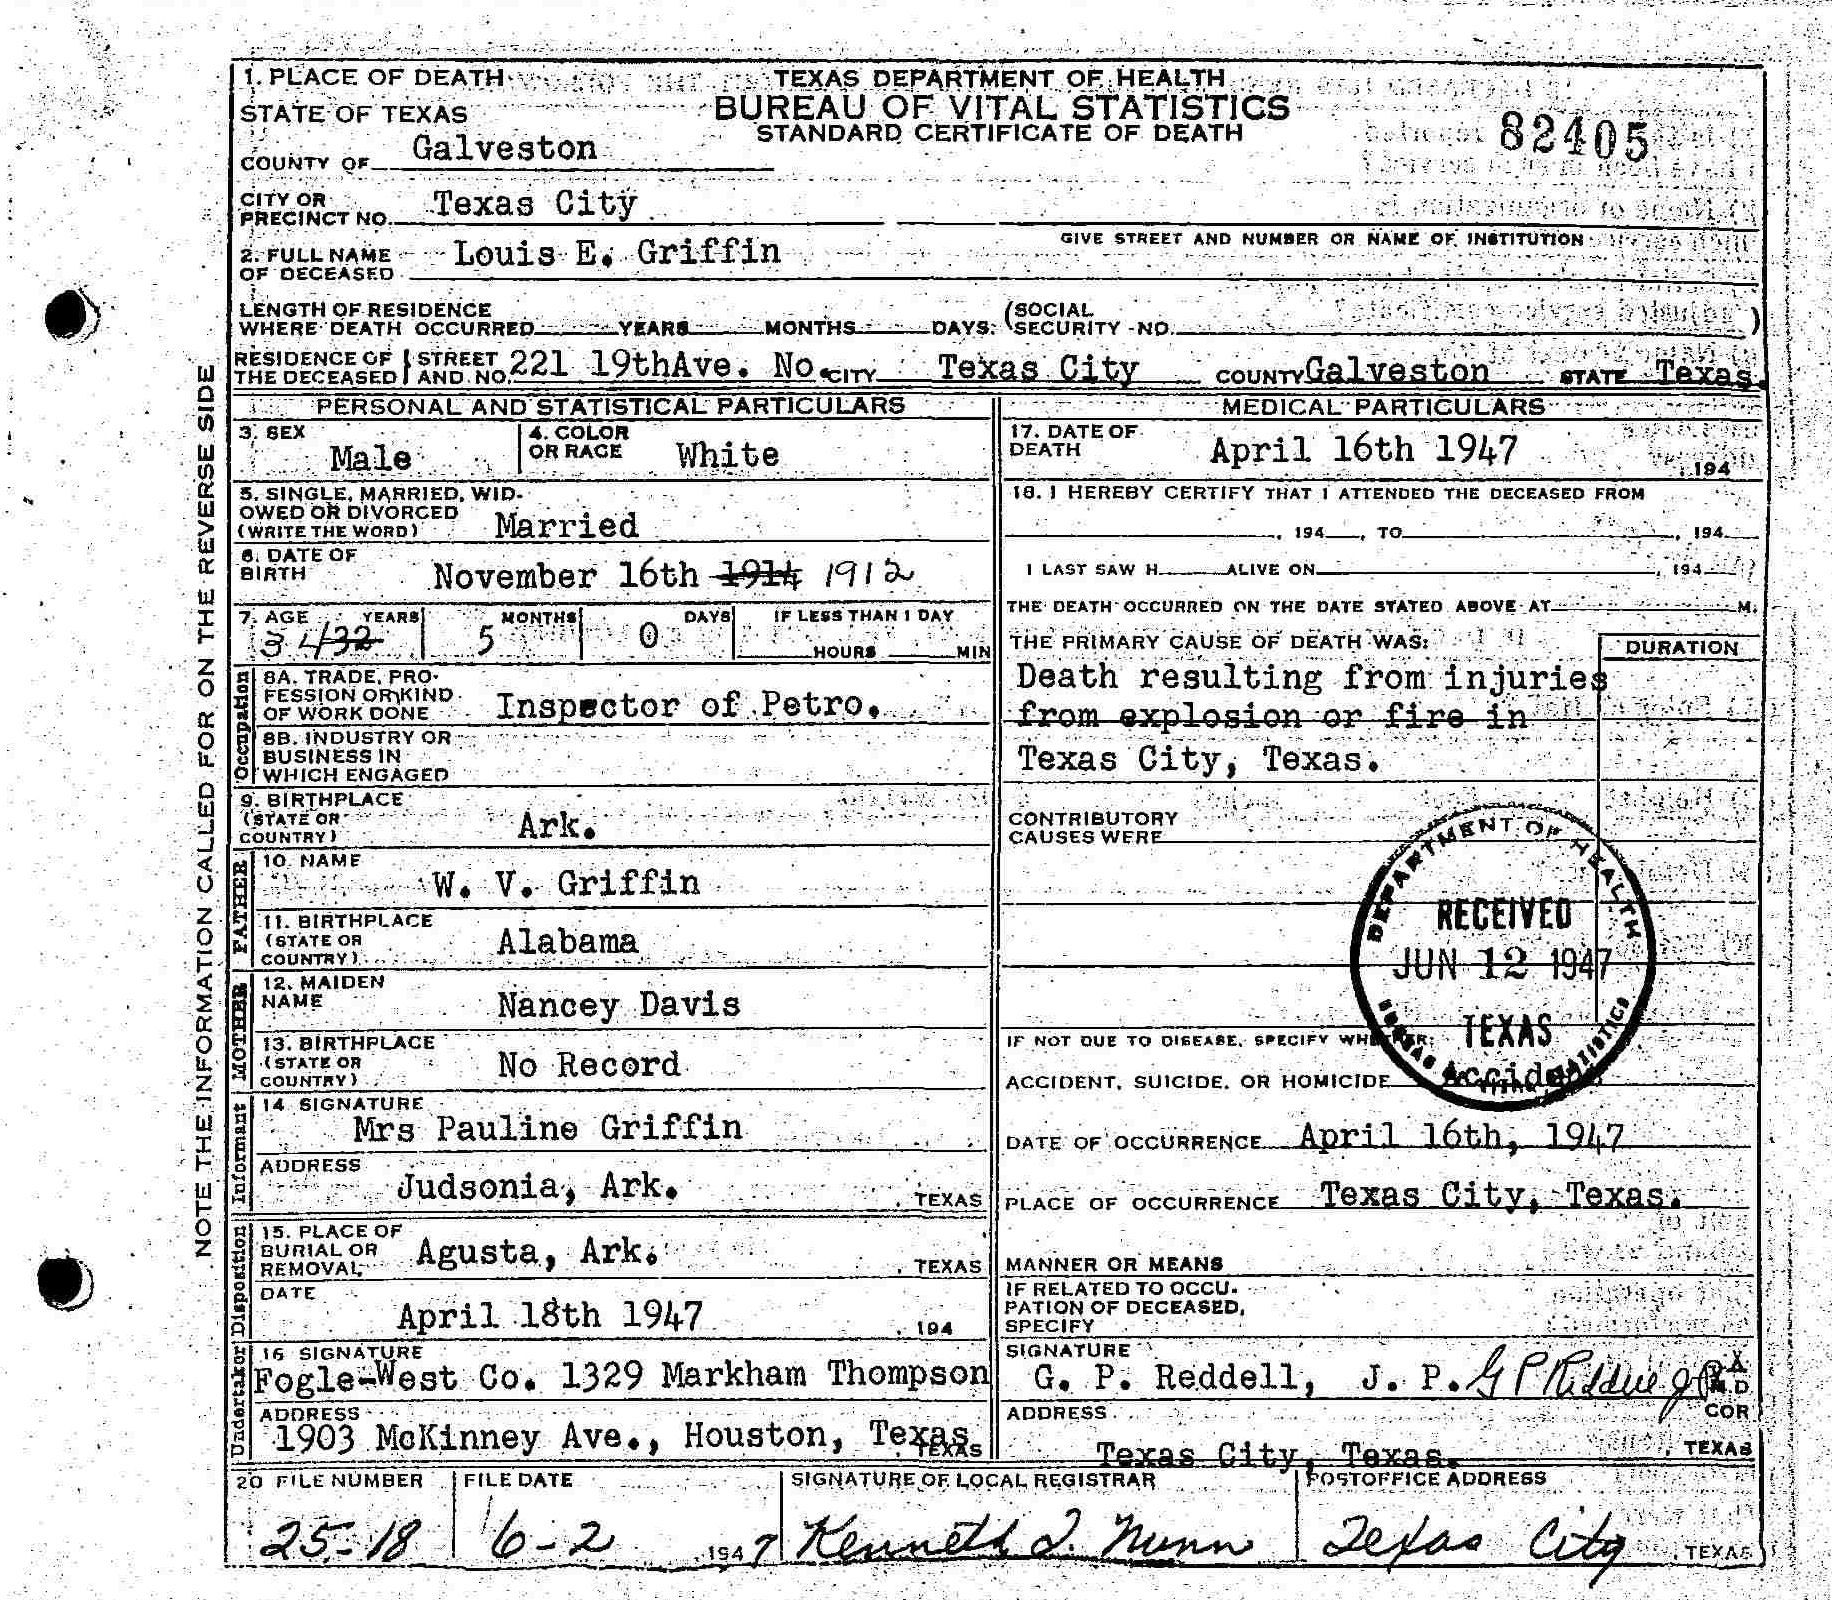 1. PLACE OF DEATH
TEXAS DEPARTMENT OF HEALTH
STATE OF TEXAS
BUREAU OF VITAL STATISTICS
STANDARD CERTIFICATE OF DEATH
82405
COUNTY OF Galveston
CITY OR
PRECINCT NO. Texas City
GIVE STREET AND NUMBER OR NAME OF INSTITUTION
2. FULL NAME
OF DECEASED Louis E. Griffin
LENGTH OF RESIDENCE
WHERE DEATH OCCURRED YEARS MONTHS DAYS. (SOCIAL
SECURITY NO. )
RESIDENCE OF
THE DECEASED STREET
AND NO. 221 19thAve. No. CITY Texas City COUNTY Galveston STATE Texas.
PERSONAL AND STATISTICAL PARTICULARS
3. SEX
Male
4. COLOR
OR RACE White
5. SINGLE, MARRIED, WID-
OWED OR DIVORCED
(WRITE THE WORD) Married
6. DATE OF
BIRTH November 16th 1914 1912
7. AGE YEARS MONTHS DAYS IF LESS THAN 1 DAY
34/32 5 0 HOURS MIN
Occupation
8A. TRADE, PRO-
FESSION OR KIND
OF WORK DONE Inspector of Petro.
8B. INDUSTRY OR
BUSINESS IN
WHICH ENGAGED
9. BIRTHPLACE
(STATE OR
COUNTRY) Ark.
FATHER
10. NAME
W. V. Griffin
11. BIRTHPLACE
(STATE OR
COUNTRY) Alabama
MOTHER
12. MAIDEN
NAME Nancey Davis
13. BIRTHPLACE
(STATE OR
COUNTRY) No Record
Informant
14 SIGNATURE
Mrs Pauline Griffin
ADDRESS
Judsonia, Ark. , TEXAS
Disposition
15. PLACE OF
BURIAL OR
REMOVAL Agusta, Ark. , TEXAS
DATE
April 18th 1947 , 194
Undertaker
16 SIGNATURE
Fogle-West Co. 1329 Markham Thompson
ADDRESS
1903 McKinney Ave., Houston, Texas , TEXAS
MEDICAL PARTICULARS
17. DATE OF
DEATH April 16th 1947 , 194
18. I HEREBY CERTIFY THAT I ATTENDED THE DECEASED FROM
, 194 , TO , 194
I LAST SAW H ALIVE ON , 194
THE DEATH OCCURRED ON THE DATE STATED ABOVE AT M.
THE PRIMARY CAUSE OF DEATH WAS: DURATION
Death resulting from injuries
from explosion or fire in
Texas City, Texas.
CONTRIBUTORY
CAUSES WERE
DEPARTMENT OF HEALTH
RECEIVED
JUN 12 1947
TEXAS
BUREAU OF VITAL STATISTICS
IF NOT DUE TO DISEASE, SPECIFY WHETHER:
ACCIDENT, SUICIDE, OR HOMICIDE Accident
DATE OF OCCURRENCE April 16th, 1947
PLACE OF OCCURRENCE Texas City, Texas.
MANNER OR MEANS
IF RELATED TO OCCU-
PATION OF DECEASED,
SPECIFY
SIGNATURE
G. P. Reddell, J. P. G P Reddell J P X
M.D
COR
ADDRESS
Texas City, Texas. , TEXAS
20 FILE NUMBER FILE DATE SIGNATURE OF LOCAL REGISTRAR POSTOFFICE ADDRESS
25-18 6-2 , 1947 Kenneth I. Nunn Texas City , TEXAS
NOTE THE INFORMATION CALLED FOR ON THE REVERSE SIDE